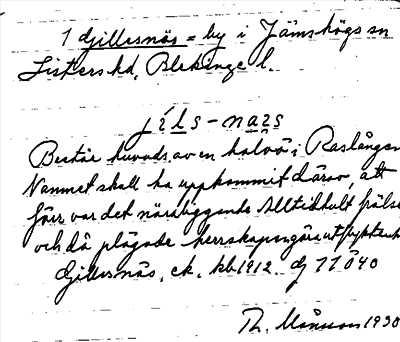 1 Gillesnäs = by i Jämshögs sn
Listers hd, Blekinge l.
jils-nais
Består huvuds. av en halvö i Raslången
Namnet skall ha uppkommit därav, att
förr var det närliggande Alltidhult frälse
och då plägade herrskapen göra utflykter
Gillesnäs, ek. kb. 1912. dj 11 ö 40
Th. Månsson 1930